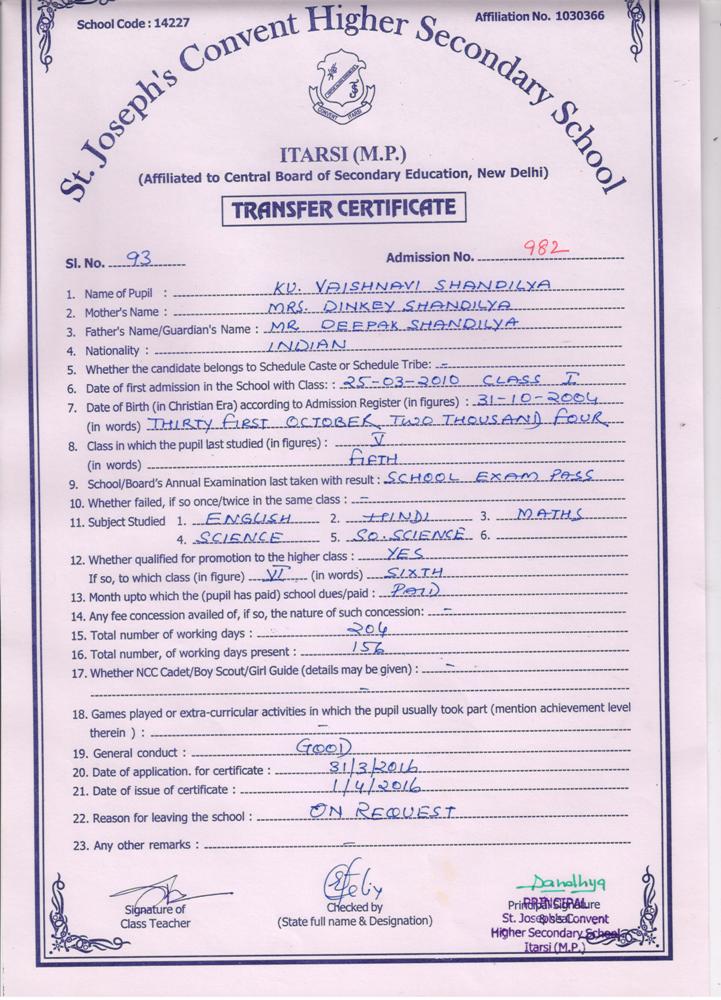 School Code : 14227
Affiliation No. 1030366
St. Joseph's Convent Higher Secondary School
CONVENT ITARSI
ITARSI (M.P.)
(Affiliated to Central Board of Secondary Education, New Delhi)
TRANSFER CERTIFICATE
Sl. No. 93 Admission No. 982
1. Name of Pupil : KU. VAISHNAVI SHANDILYA
2. Mother's Name : MRS. DINKEY SHANDILYA
3. Father's Name/Guardian's Name : MR DEEPAK SHANDILYA
4. Nationality : INDIAN
5. Whether the candidate belongs to Schedule Caste or Schedule Tribe: -
6. Date of first admission in the School with Class: : 25-03-2010 CLASS I
7. Date of Birth (in Christian Era) according to Admission Register (in figures) : 31-10-2004
(in words) THIRTY FIRST OCTOBER TWO THOUSAND FOUR
8. Class in which the pupil last studied (in figures) : V
(in words) FIFTH
9. School/Board's Annual Examination last taken with result : SCHOOL EXAM PASS
10. Whether failed, if so once/twice in the same class : -
11. Subject Studied 1. ENGLISH 2. HINDI 3. MATHS
4. SCIENCE 5. SO.SCIENCE 6.
12. Whether qualified for promotion to the higher class : YES
If so, to which class (in figure) VI (in words) SIXTH
13. Month upto which the (pupil has paid) school dues/paid : PAID
14. Any fee concession availed of, if so, the nature of such concession: -
15. Total number of working days : 204
16. Total number, of working days present : 156
17. Whether NCC Cadet/Boy Scout/Girl Guide (details may be given) : -
-
18. Games played or extra-curricular activities in which the pupil usually took part (mention achievement level
therein ) : -
19. General conduct : GOOD
20. Date of application. for certificate : 31/3/2016
21. Date of issue of certificate : 1/4/2016
22. Reason for leaving the school : ON REQUEST
23. Any other remarks : -
Signature of
Class Teacher
Checked by
(State full name & Designation)
Principal Signature
PRINCIPAL
St. Joseph's Convent
Higher Secondary School
Itarsi (M.P.)